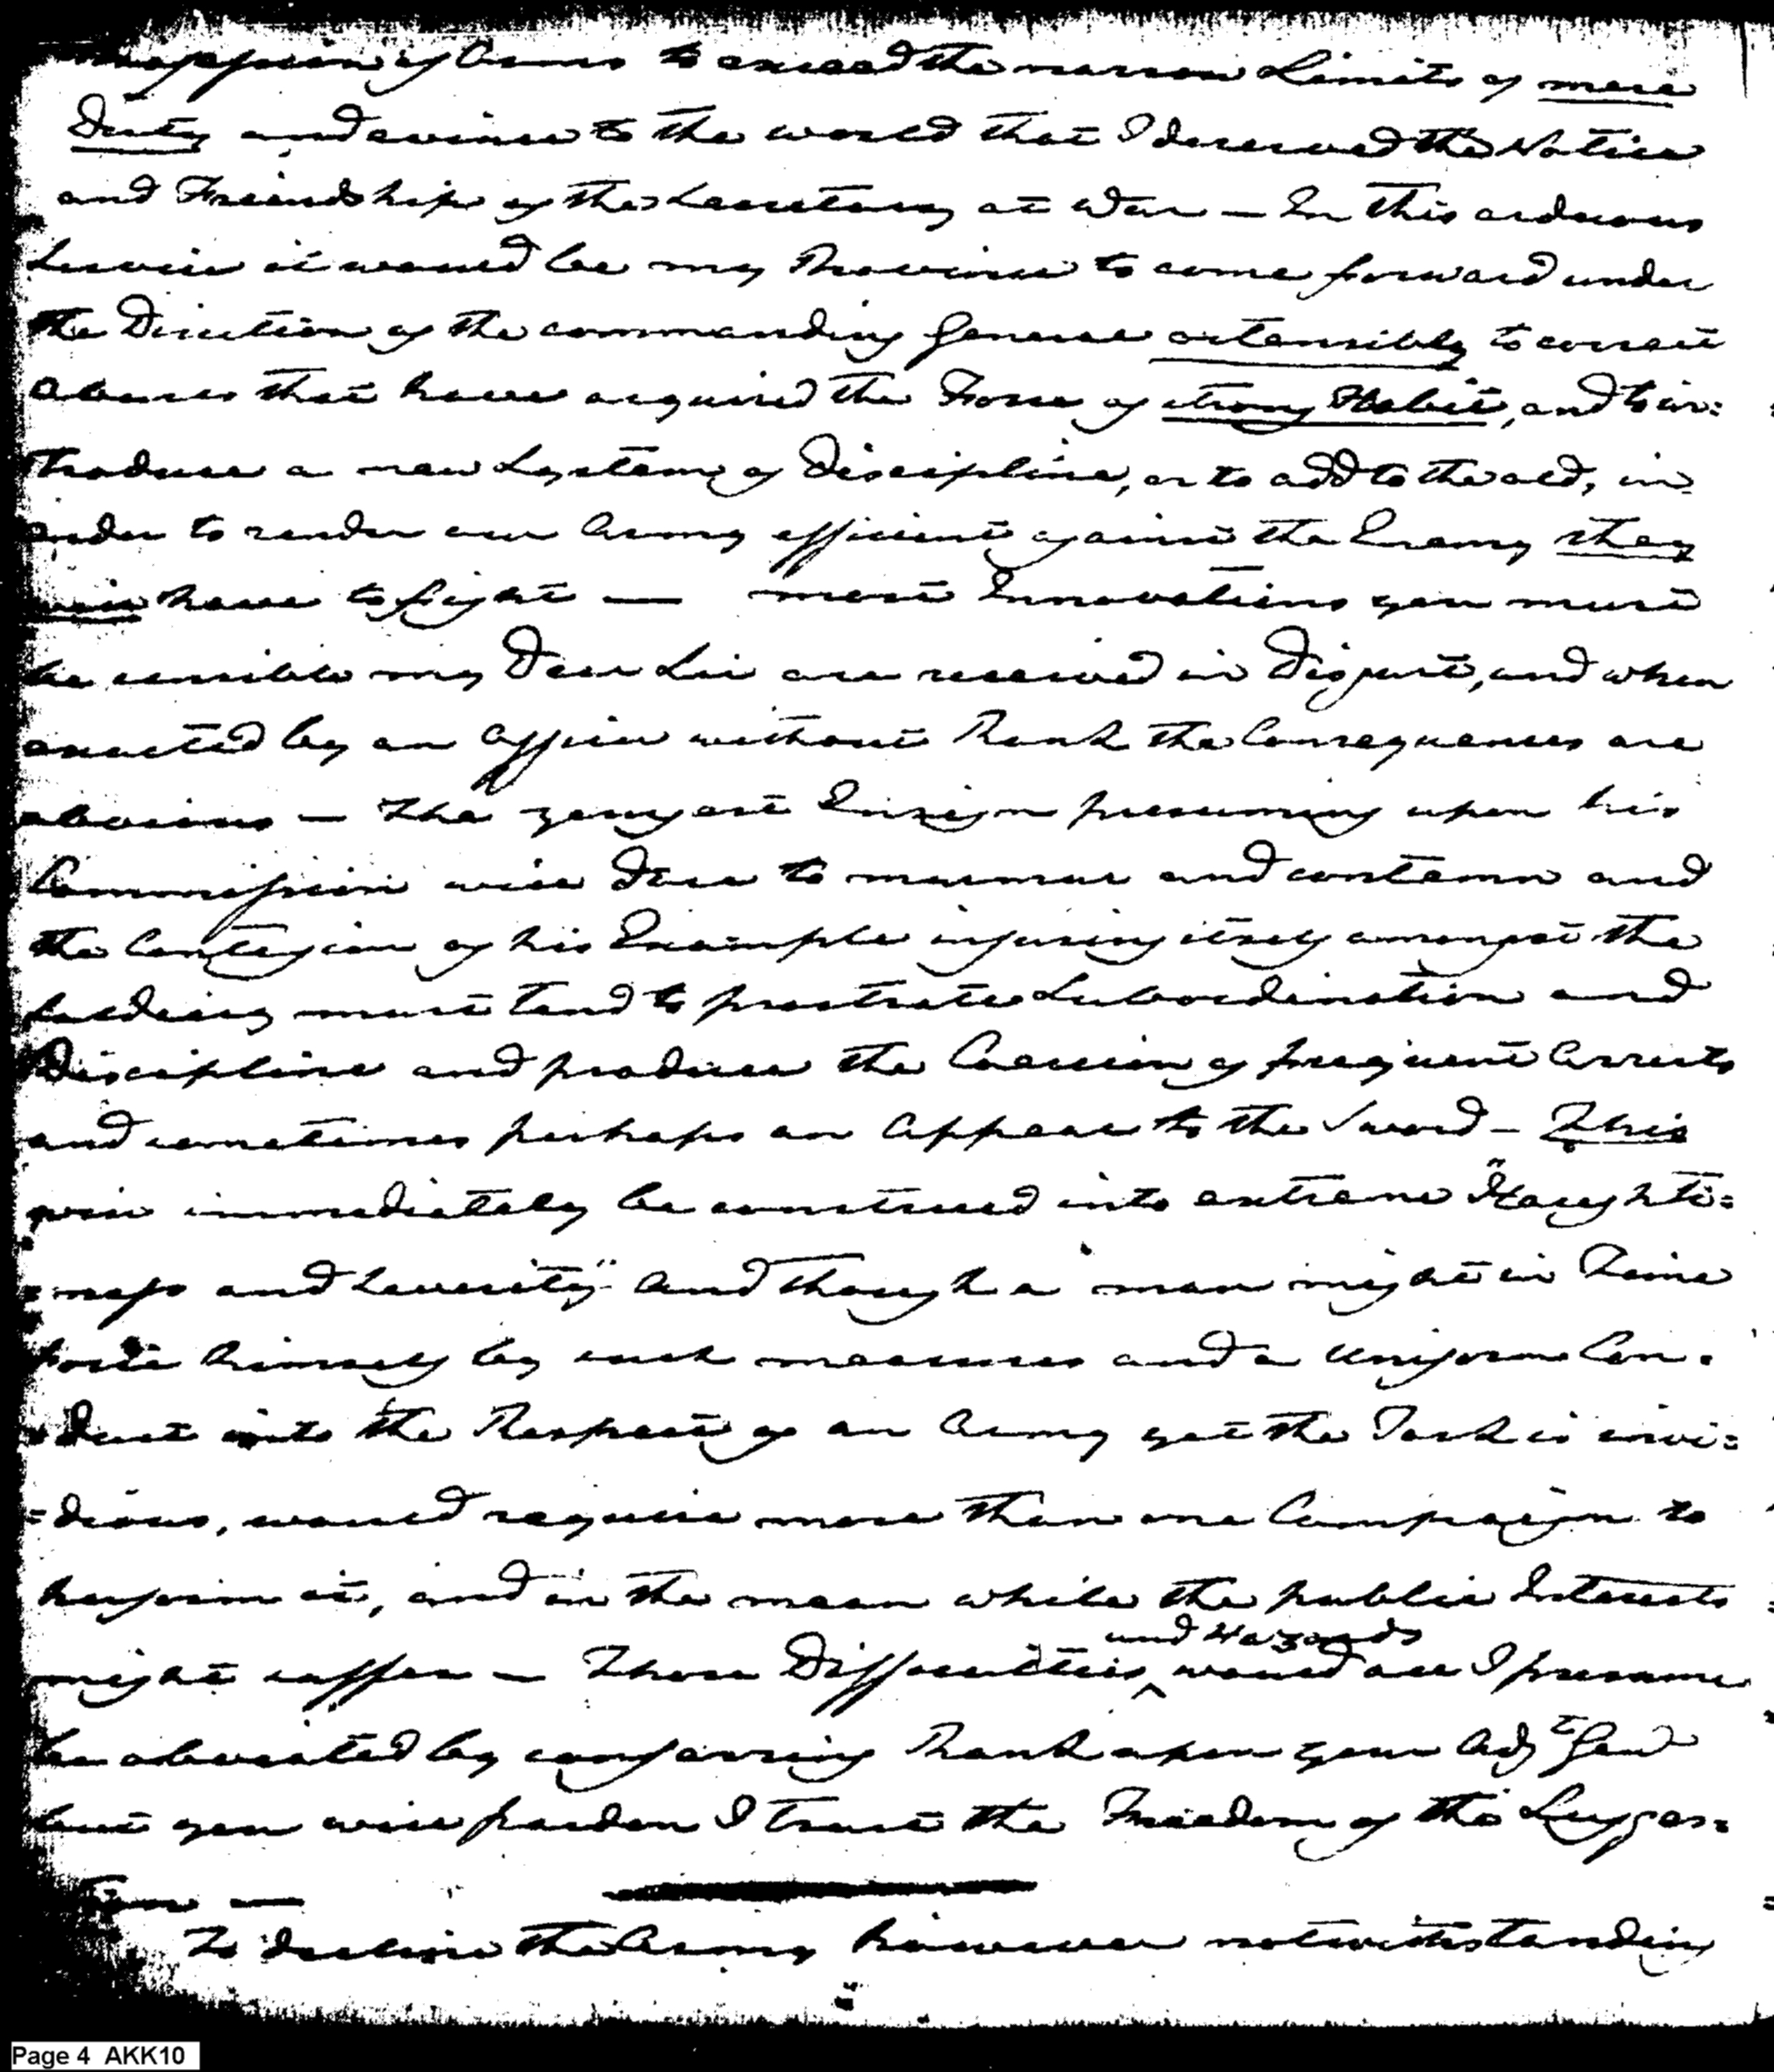 Profession of Arms to exceed the narrow Limits of mere
Duty and evince to the world that I deserved the Notice
and Friendship of the Secretary at War — In this arduous
Service it would be my Province to come forward under
the Direction of the commanding General ostensibly to correct
Abuses that have acquired the Force of strong Habit, and to in=
troduce a new System of Discipline, or to add to the old, in
order to render our Army efficient against the Enemy they
will have to fight — most Innovations you must
be sensible my Dear Sir are received in Disgust, and when
exacted by an Officer without Rank the Consequences are
obvious — The youngest Ensign presuming upon his
Commission will dare to murmur and contemn and
the Contagion of his Example infusing itself amongst the
Soldiery must tend to prostrate Subordination and
Discipline and produce the Occasion of frequent Arrests
and sometimes perhaps an Appeal to the Sword — This
will immediately be construed into extreme "Haughti=
=ness and Severity" And though a man might in Time
force himself by such measures and a Uniform Con=
=duct into the Respect of an Army yet the Task is invi=
=dious, would require more than one Campaign to
perform it, and in the mean while the public Interests
might suffer — Those Difficulties ^ would all I presume
and Hazards
be obviated by conferring Rank upon your Adjt Genl
but you will pardon I trust the Freedom of the Sugges=
tion —
To decline the Army however notwithstanding
Page 4 AKK10